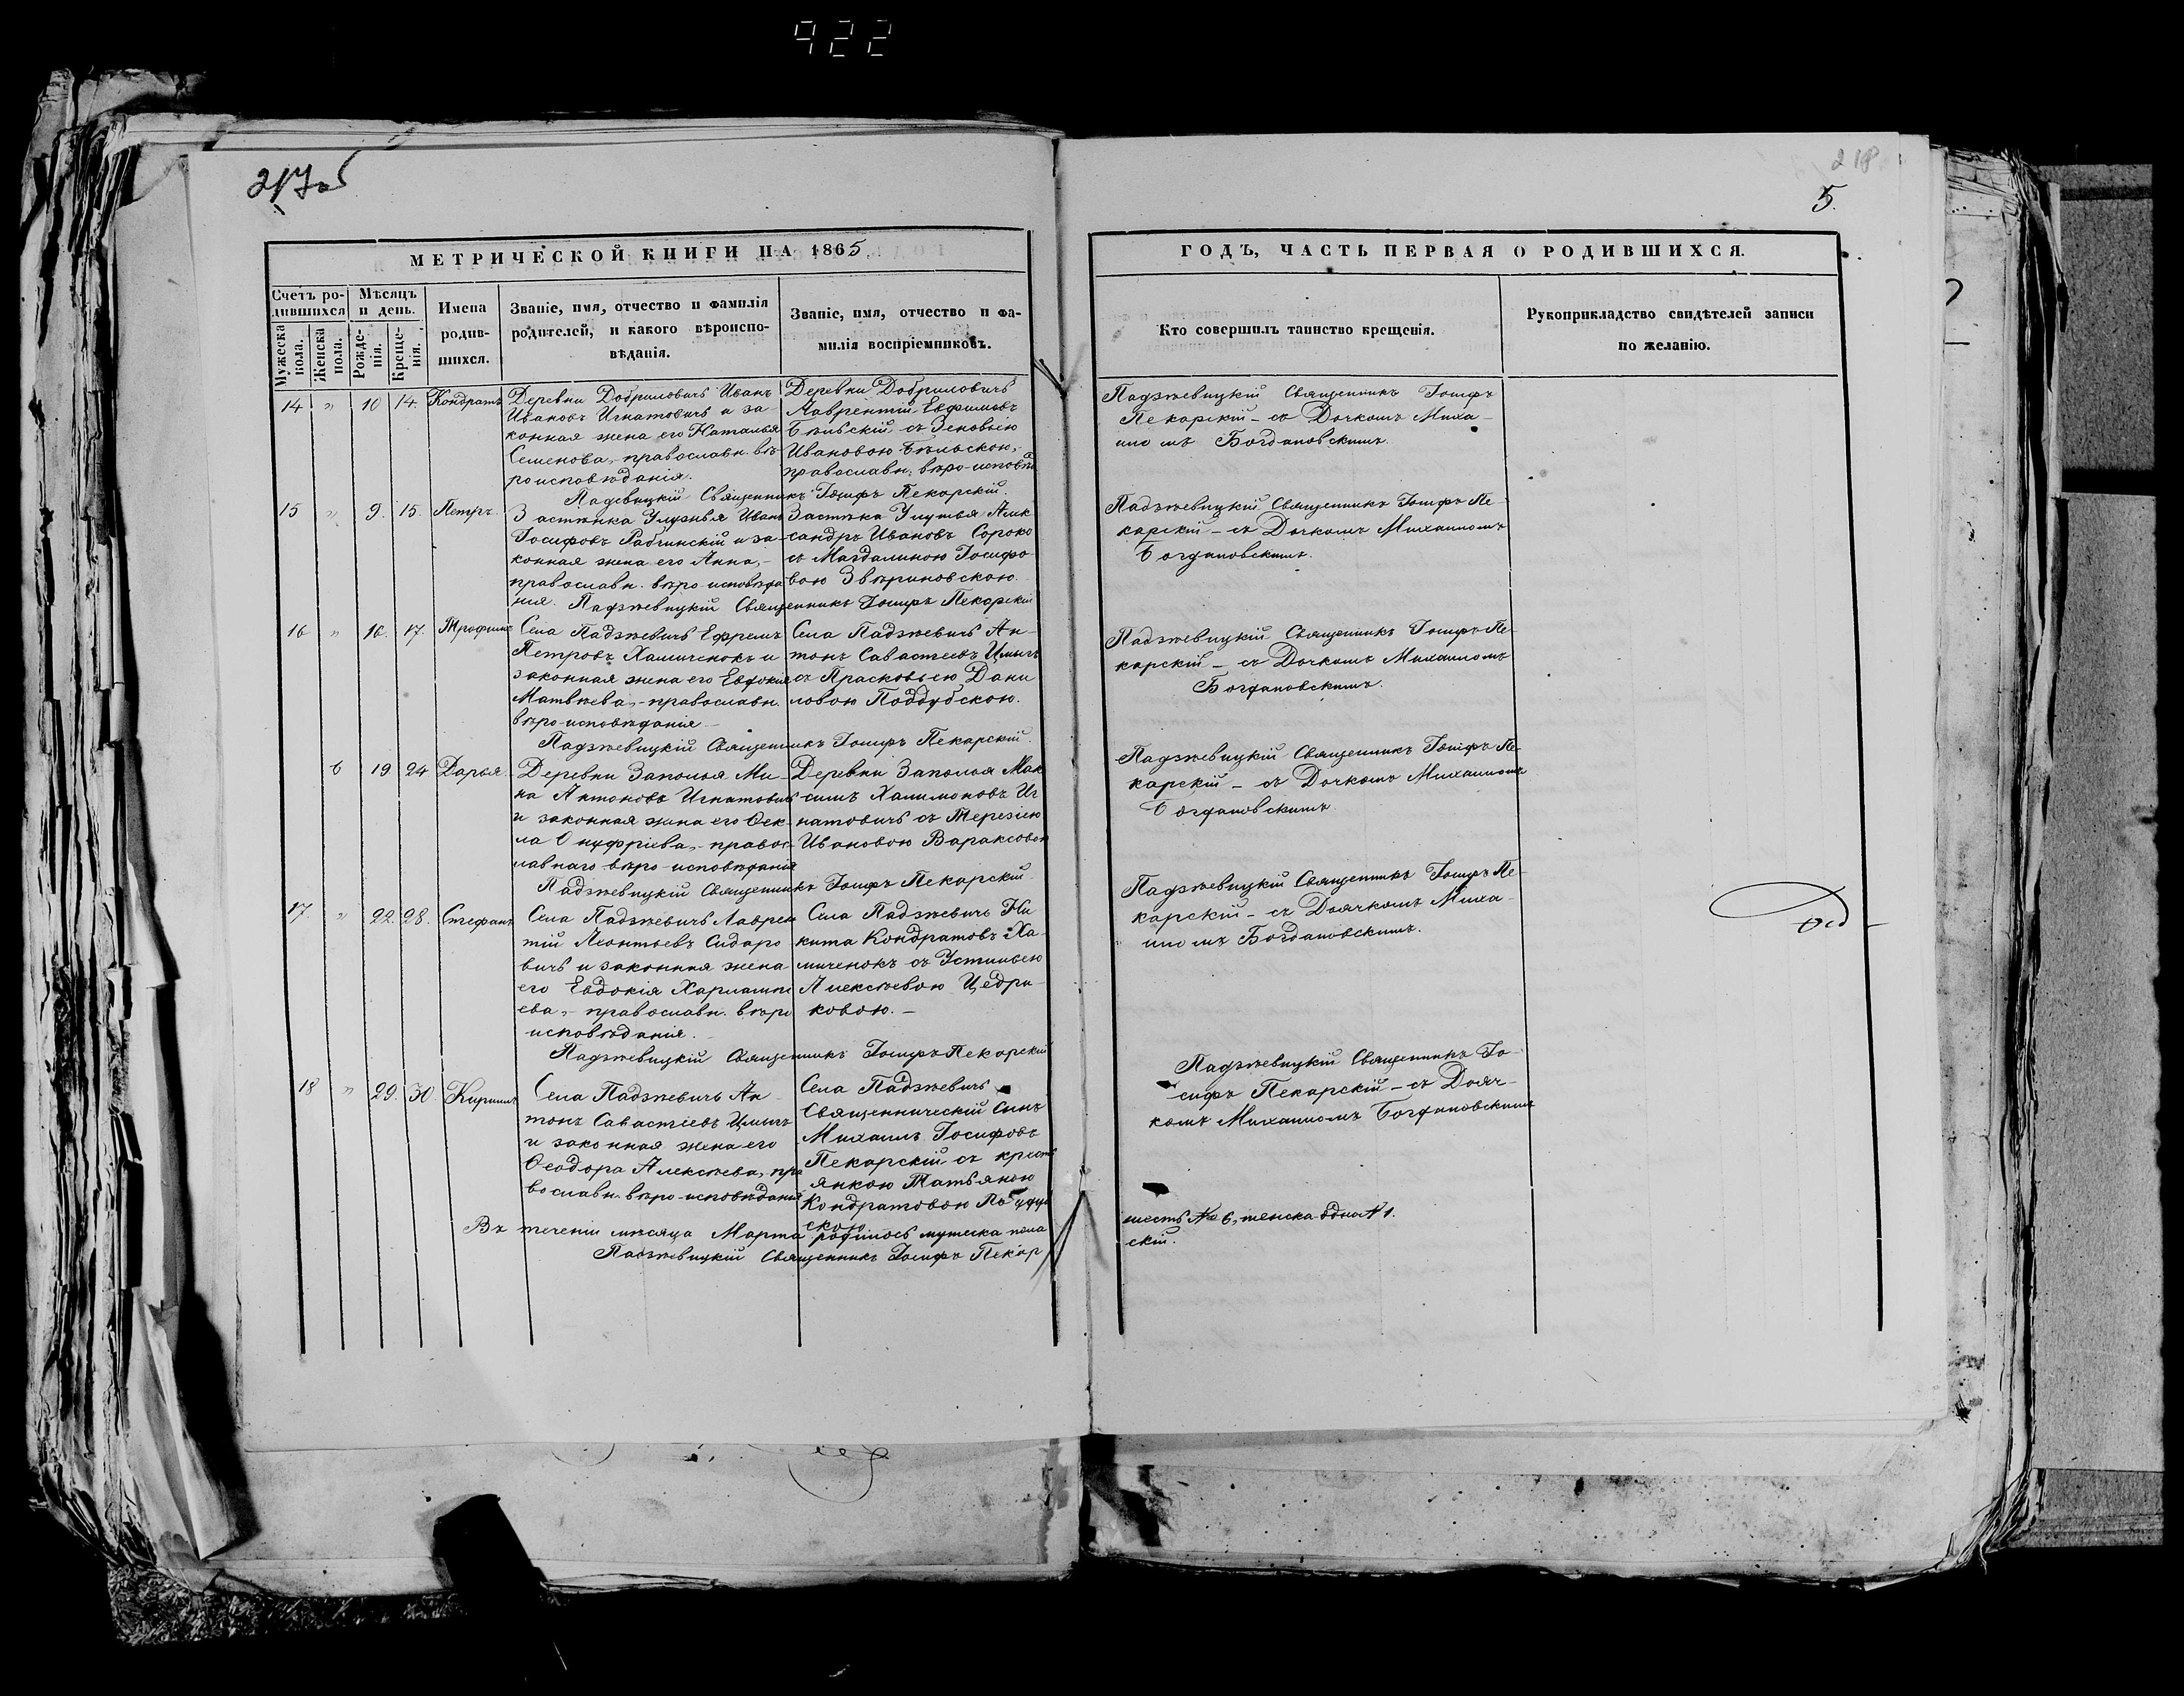 922
217об
218
5.
МЕТРИЧЕСКОЙ КНИГИ НА 1865
ГОДЪ, ЧАСТЬ ПЕРВАЯ О РОДИВШИХСЯ.
Счетъ ро-
дившихся
Мужеска
пола.
Женска
пола.
Мѣсяцъ
и день.
Рожде-
нія.
Креще-
нія.
Имена
родив-
шихся.
Званіе, имя, отчество и фамилія
родителей, и какого вѣроиспо-
вѣданія.
Званіе, имя, отчество и фа-
милія воспріемниковъ.
Кто совершилъ таинство крещенія.
Рукоприкладство свидѣтелей записи
по желанію.
14 " 10 14. Кондратъ
Деревни Добриловичъ Иванъ
Ивановъ Игнатовичъ и за-
конная жена его Наталья
Семенова, - православн. вѣ
роисповѣданія.
Деревни Добриловичъ
Лаврентій Евфимовъ
Бѣльскій съ Зеновьею
Ивановою Бѣльскою,
православн. вѣро-исповѣд
Падзѣвицкій Священникъ Іосифъ
Пекарскій - съ Дочкомъ Миха-
иломъ Богдановскимъ.
Падевицкій Священникъ Іосифъ Пекарскій.
15 " 9. 15. Петръ.
Застѣнка Иванъ
Іосифовъ и за-
конная жена его Анна, -
православн. вѣро-исповѣда
нія.
Застѣнка Алек
сандръ Ивановъ Сороко
съ Магдалиною Іосифо
вою Звѣриновскою.
Падзѣвицкій Священникъ Іосифъ Пе-
карскій - съ Дочкомъ Михаиломъ
Богдановскимъ.
Падзѣвицкій Священникъ Іосифъ Пекарскій
16 " 16. 17. Трофимъ
Села Падзѣвичъ Ефремъ
Петровъ Хамиченокъ и
законная жена его Евдокія
Матвѣева, - православн.
вѣро-исповѣданія -
Села Падзѣвичъ Ан-
тонъ Савастеевъ Цмыгъ
съ Прасковьею Дани
ловою Поддубскою.
Падзѣвицкій Священникъ Іосифъ Пе-
карскій - съ Дочкомъ Михаиломъ
Богдановскимъ.
Падзѣвицкій Священникъ Іосифъ Пекарскій.
6 19 24 Дарья.
Деревни Заполья Ми-
на Антоновъ Игнатовичъ
и законная жена его Ѳек-
ла Онуфріева, - правос-
лавнаго вѣро-исповѣданія
Деревни Заполья Мак
симъ Халимоновъ Иг
натовичъ съ Терезіею
Ивановою Вараксовою
Падзѣвицкій Священникъ Іосифъ Пе-
карскій - съ Дочкомъ Михаиломъ
Богдановскимъ
Падзѣвицкій Священникъ Іосифъ Пекарскій
17. " 22. 28. Стефанъ
Села Падзѣвичъ Лаврен
тій Леонтьевъ Сидаро
вичъ и законная жена
его Евдокія Харлампі
ева, - православн. вѣро
исповѣданія.
Села Падзѣвичъ Ни
кита Кондратовъ Ха-
миченокъ съ Устиньею
Алексѣевою Цедри-
ковою. -
Падзѣвицкій Священникъ Іосифъ Пе-
карскій - съ Доячкомъ Миха-
иломъ Богдановскимъ.
Падзѣвицкій Священникъ Іосифъ Пекарскій
18 " 29. 30. Кириллъ
Села Падзѣвичъ Ан-
тонъ Савастіевъ Цмыгъ
и законная жена его
Ѳеодора Алексѣева, пра
вославн. вѣро-исповѣданія
Села Падзѣвичъ
Священническій сынъ
Михаилъ Іосифовъ
Пекарскій съ крест
янкою Татьяною
Кондратовою
скою
Падзѣвицкій Священникъ Іо-
сифъ Пекарскій - съ Дояч-
комъ Михаиломъ Богдановскимъ
Въ теченіи мѣсяца Марта родилось мужеска пола
шесть № 6, женска одна № 1.
Падзѣвицкій Священникъ Іосифъ Пекар
скій.